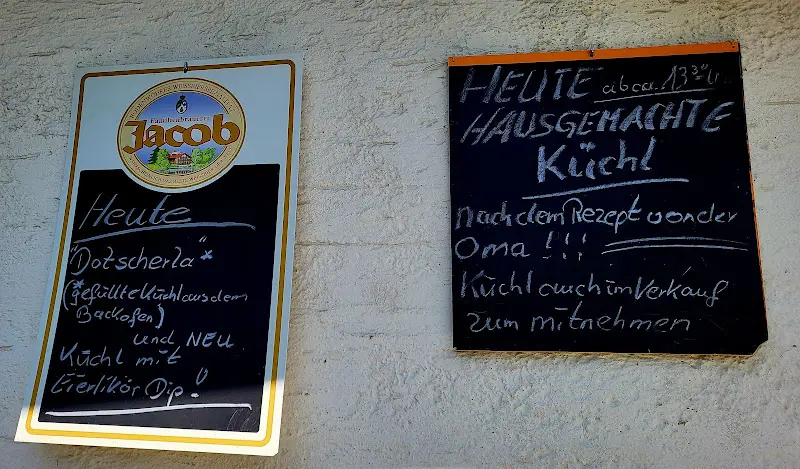 Familienbrauerei
Jacob
Heute
"Dotscherla"*
(*gefüllte Küchl aus dem
Backofen)
und NEU
Küchl mit
Eierlikör Dip!
HEUTE ab ca. 13³⁰ U.
HAUSGEMACHTE
Küchl
nach dem Rezept von der
Oma !!!
Küchl auch im Verkauf
zum mitnehmen